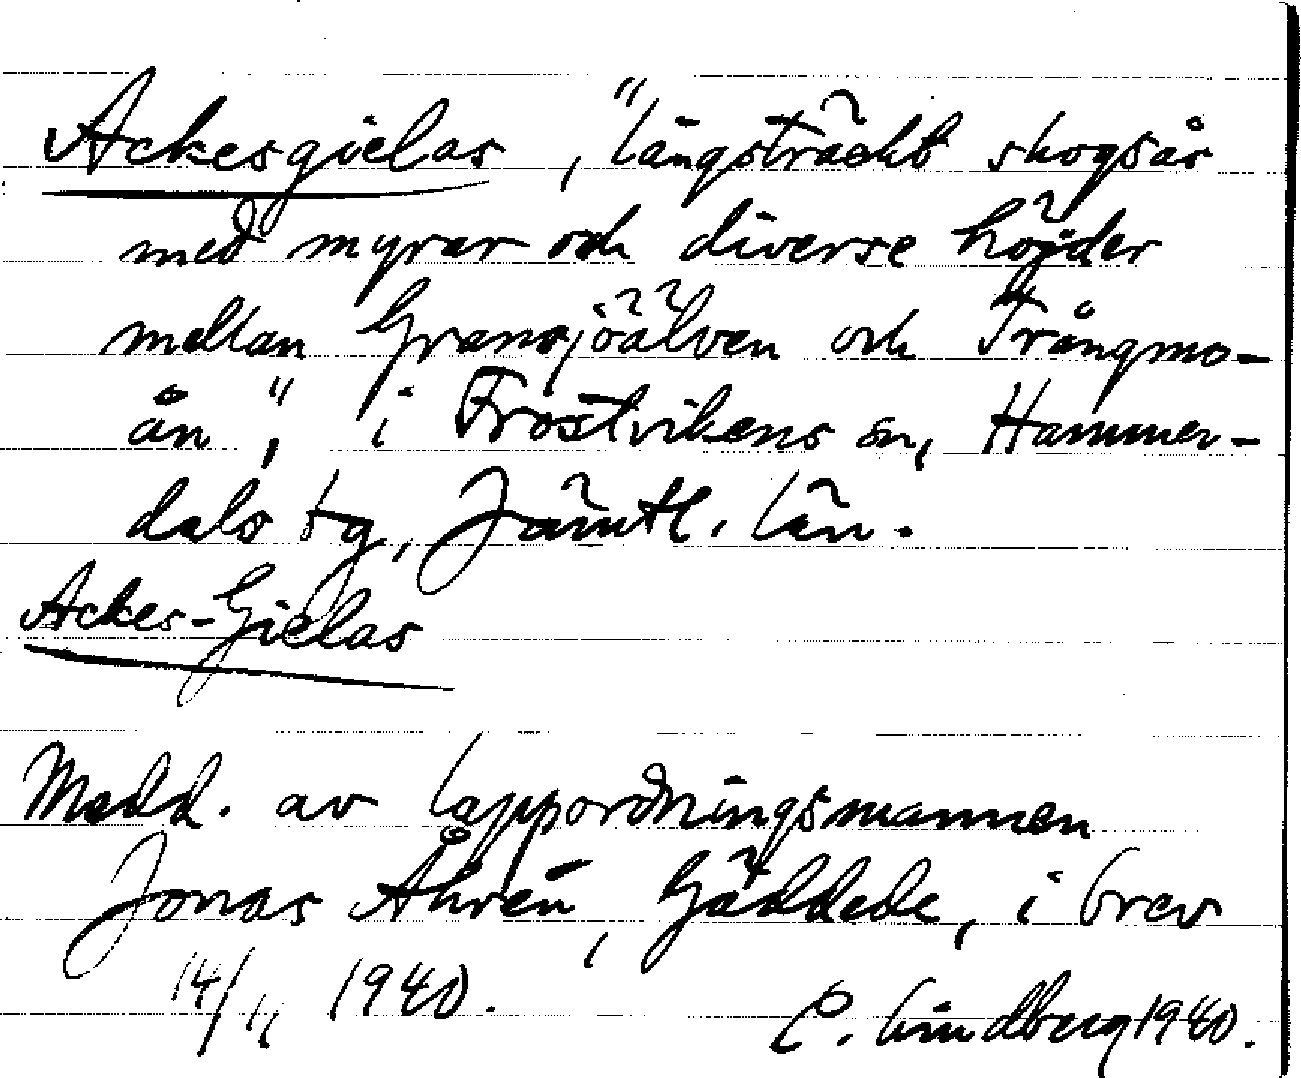 Ackesgielas, "långsträckt skogsås
med myrar och diverse höjder
mellan Gransjöälven och Trångmo-
ån", i Frostvikens sn, Hammer-
dals tg, Jämtl. län.
Ackes-Gielas
Medd. av lappordningsmannen
Jonas Åhrén, Gäddede, i brev
14/11 1940.
C. Lindberg 1940.